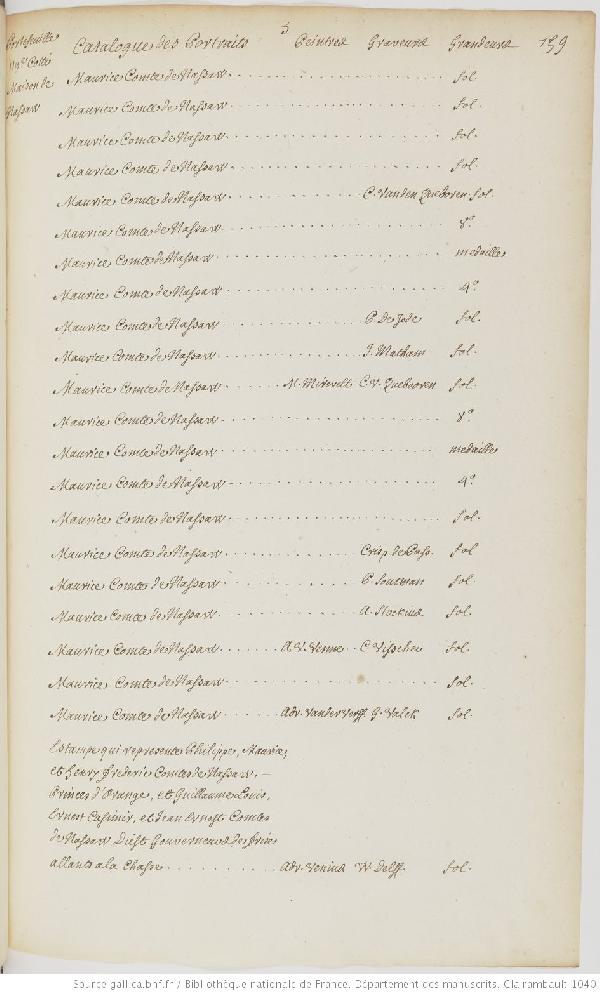 5
Portefeuille Catalogue des Portraits Peintres Graveurs Grandeurs 159
Cotté
Maison de
Nassaw
Maurice Comte de Nassaw fol.
Maurice Comte de Nassaw fol.
Maurice Comte de Nassaw fol.
Maurice Comte de Nassaw fol.
Maurice Comte de Nassaw C. Vanden Queboren fol.
Maurice Comte de Nassaw 8º
Maurice Comte de Nassaw medaille
Maurice Comte de Nassaw 4º
Maurice Comte de Nassaw P. De Jode fol.
Maurice Comte de Nassaw J. Matham fol.
Maurice Comte de Nassaw M. Mirevelt C. V. Queboren fol.
Maurice Comte de Nassaw 8º
Maurice Comte de Nassaw medaille
Maurice Comte de Nassaw 4º
Maurice Comte de Nassaw fol.
Maurice Comte de Nassaw Crisp de Pass. fol
Maurice Comte de Nassaw P. Soutman fol.
Maurice Comte de Nassaw A. Stockius fol.
Maurice Comte de Nassaw A. V. Venne C. Visscher fol.
Maurice Comte de Nassaw fol.
Maurice Comte de Nassaw Adr. Vander Verff G. Valck fol.
Estampe qui represente Philippe, Maurice,
et Henry Frederic Comtes de Nassaw.—
Princes d'Orange, et Guillaume Louis,
Ernest Casimir, et Jean Ernest Comtes
de Nassaw Diest Gouverneurs de frise
allants a la Chasse Adr. Venius W Delff. fol.
Source gallica.bnf.fr / Bibliothèque nationale de France. Département des manuscrits. Clairambault 1040